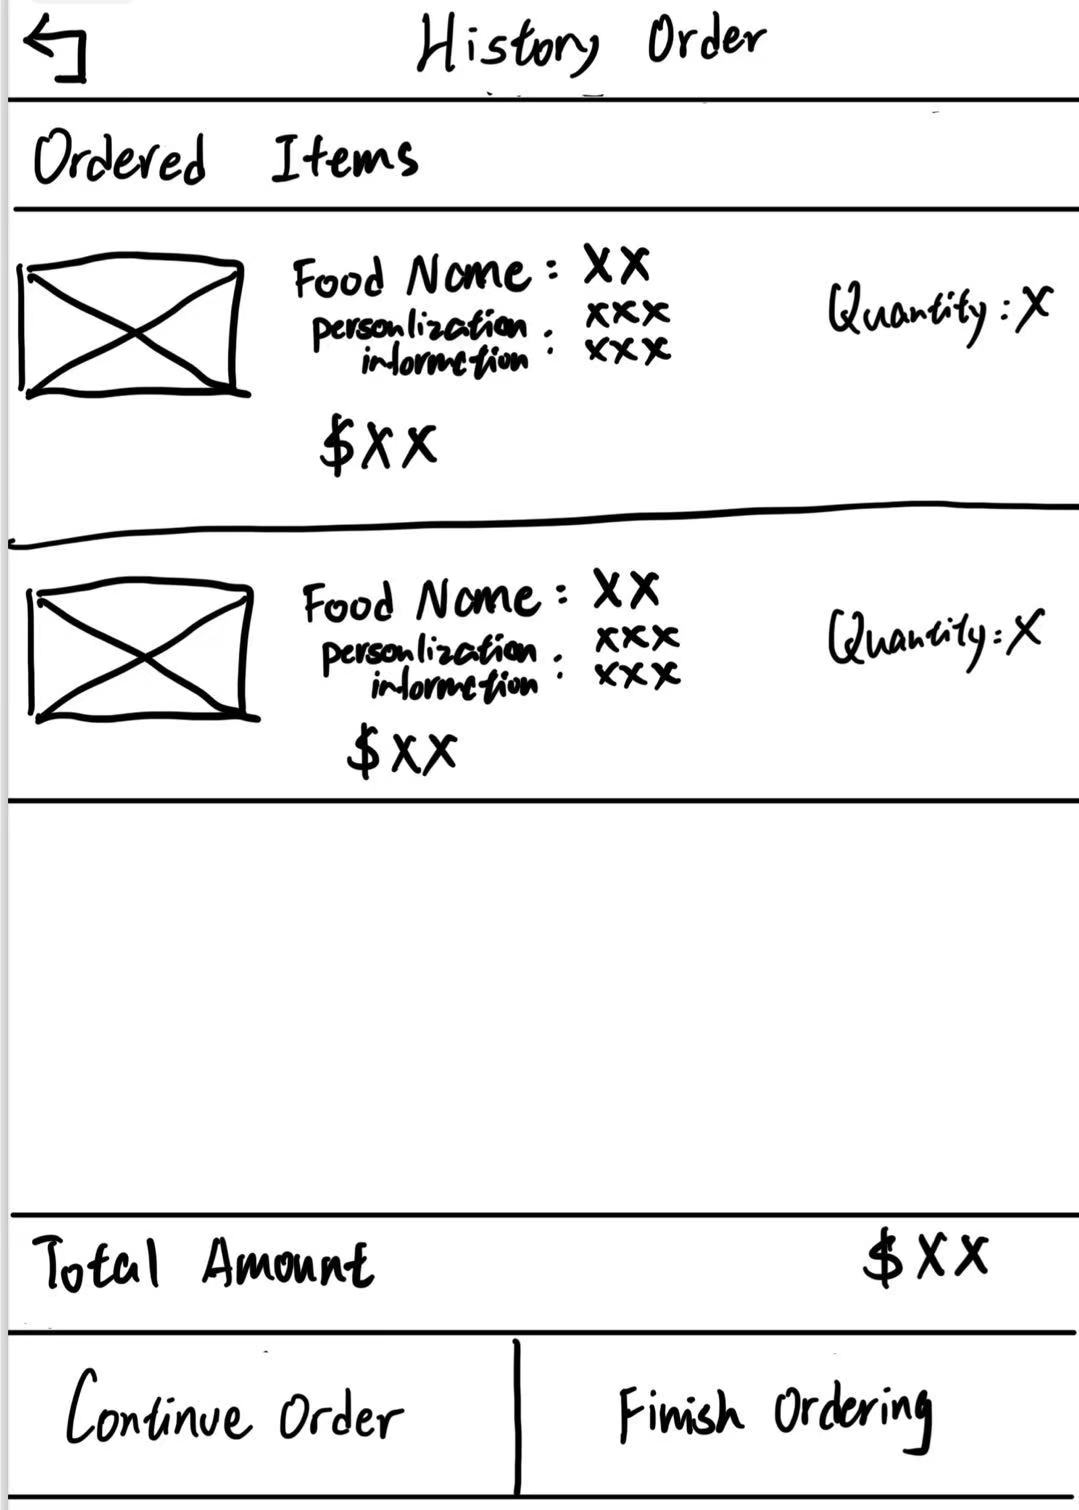 History Order
Ordered Items
Food Name : XX
personlization : xxx
informetion : xxx
Quantity : X
$XX
Food Name : XX
personlization : xxx
informetion : xxx
Quantity : X
$XX
Total Amount $XX
Continue Order
Finish Ordering